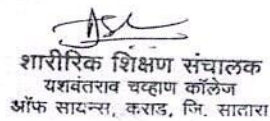 शारीरिक शिक्षण संचालक
यशवंतराव चव्हाण कॉलेज
ऑफ सायन्स, कराड, जि. सातारा